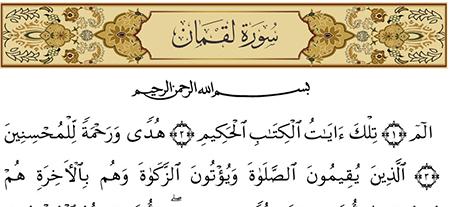 سُورَةُ لُقْمَان
بسم الله الرحمن الرحيم
الٓمٓ ﴿١﴾ تِلْكَ ءَايَٰتُ ٱلْكِتَٰبِ ٱلْحَكِيمِ ﴿٢﴾ هُدًى وَرَحْمَةً لِّلْمُحْسِنِينَ
﴿٣﴾ ٱلَّذِينَ يُقِيمُونَ ٱلصَّلَوٰةَ وَيُؤْتُونَ ٱلزَّكَوٰةَ وَهُم بِٱلْأَخِرَةِ هُمْ